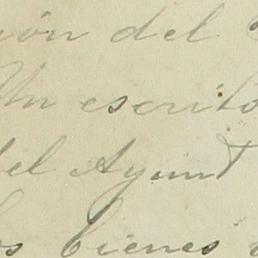 ión del
Un escrito
del Ayunt
los bienes